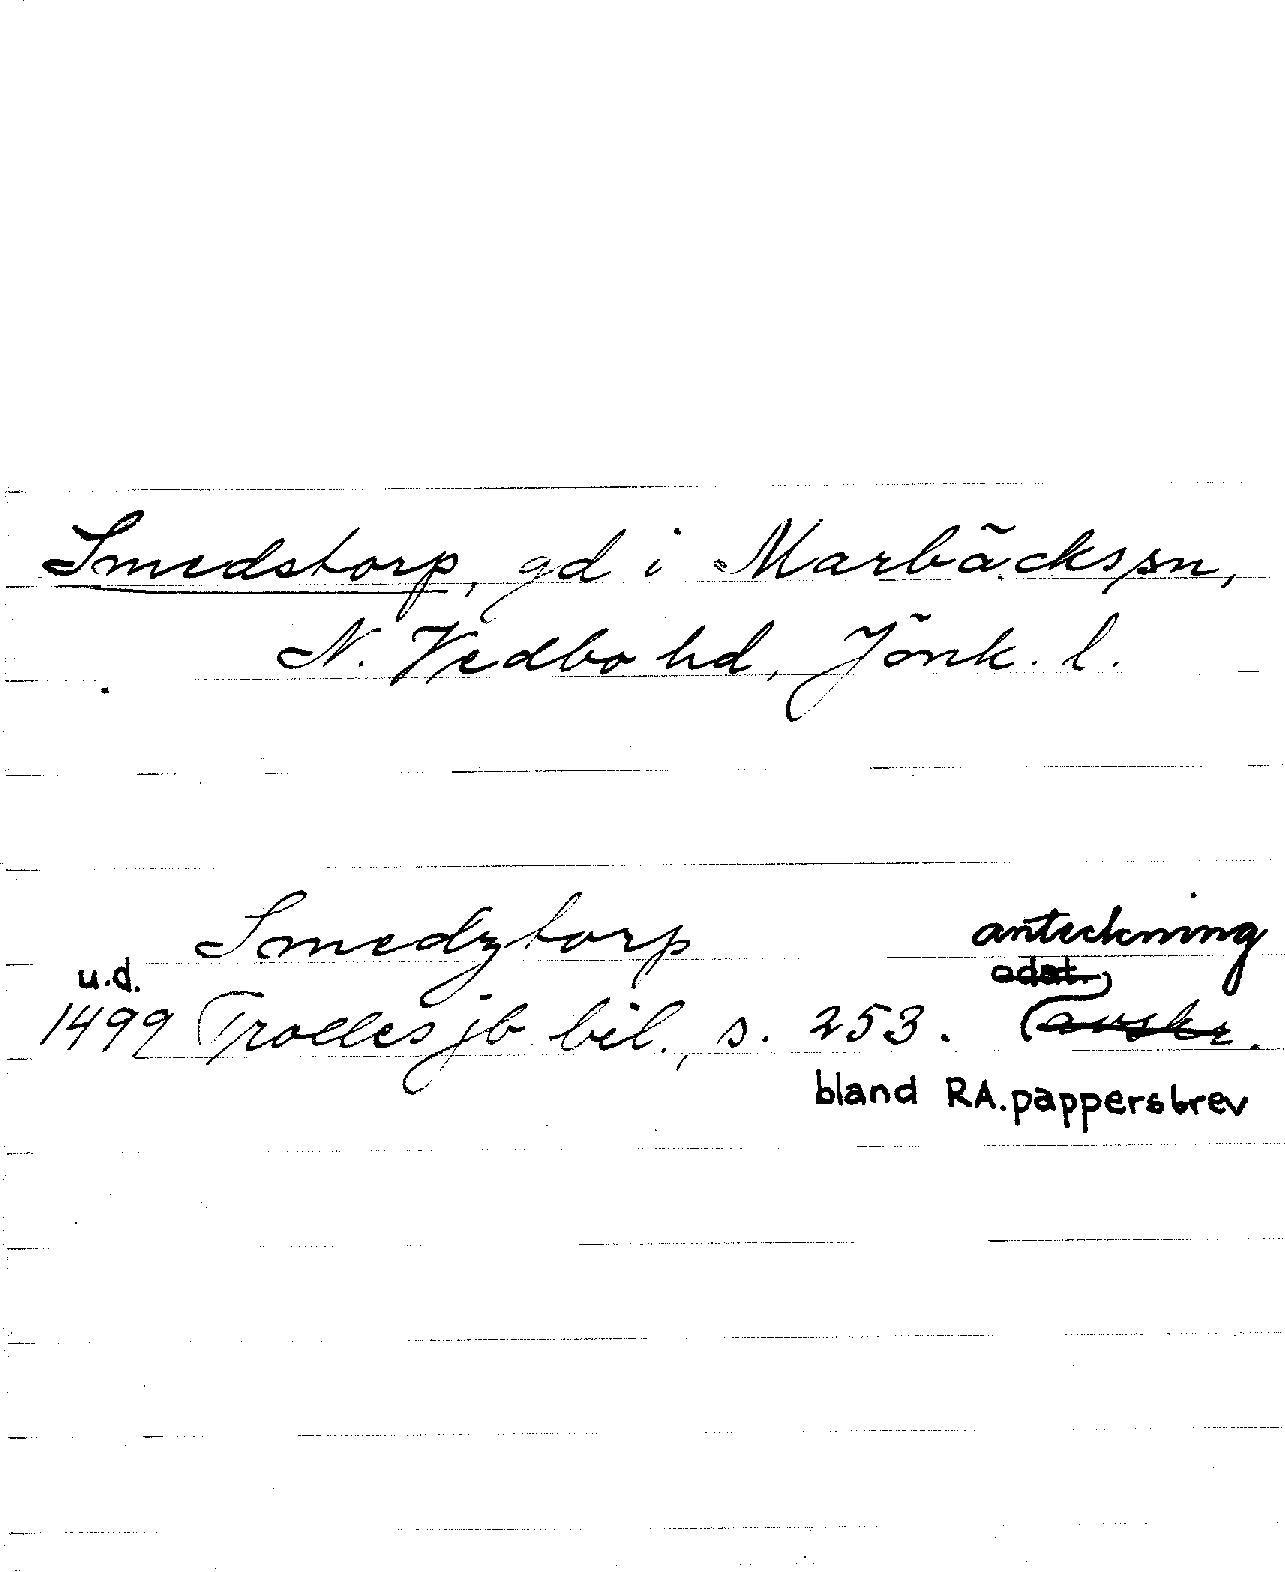 Smedstorp, gd i Marbäcks sn,
N. Vedbo hd, Jönk. l.
Smedztorp
anteckning
u.d.
odat.
1499 Trolles jb bil., s. 253. (avskr.
bland RA. pappersbrev